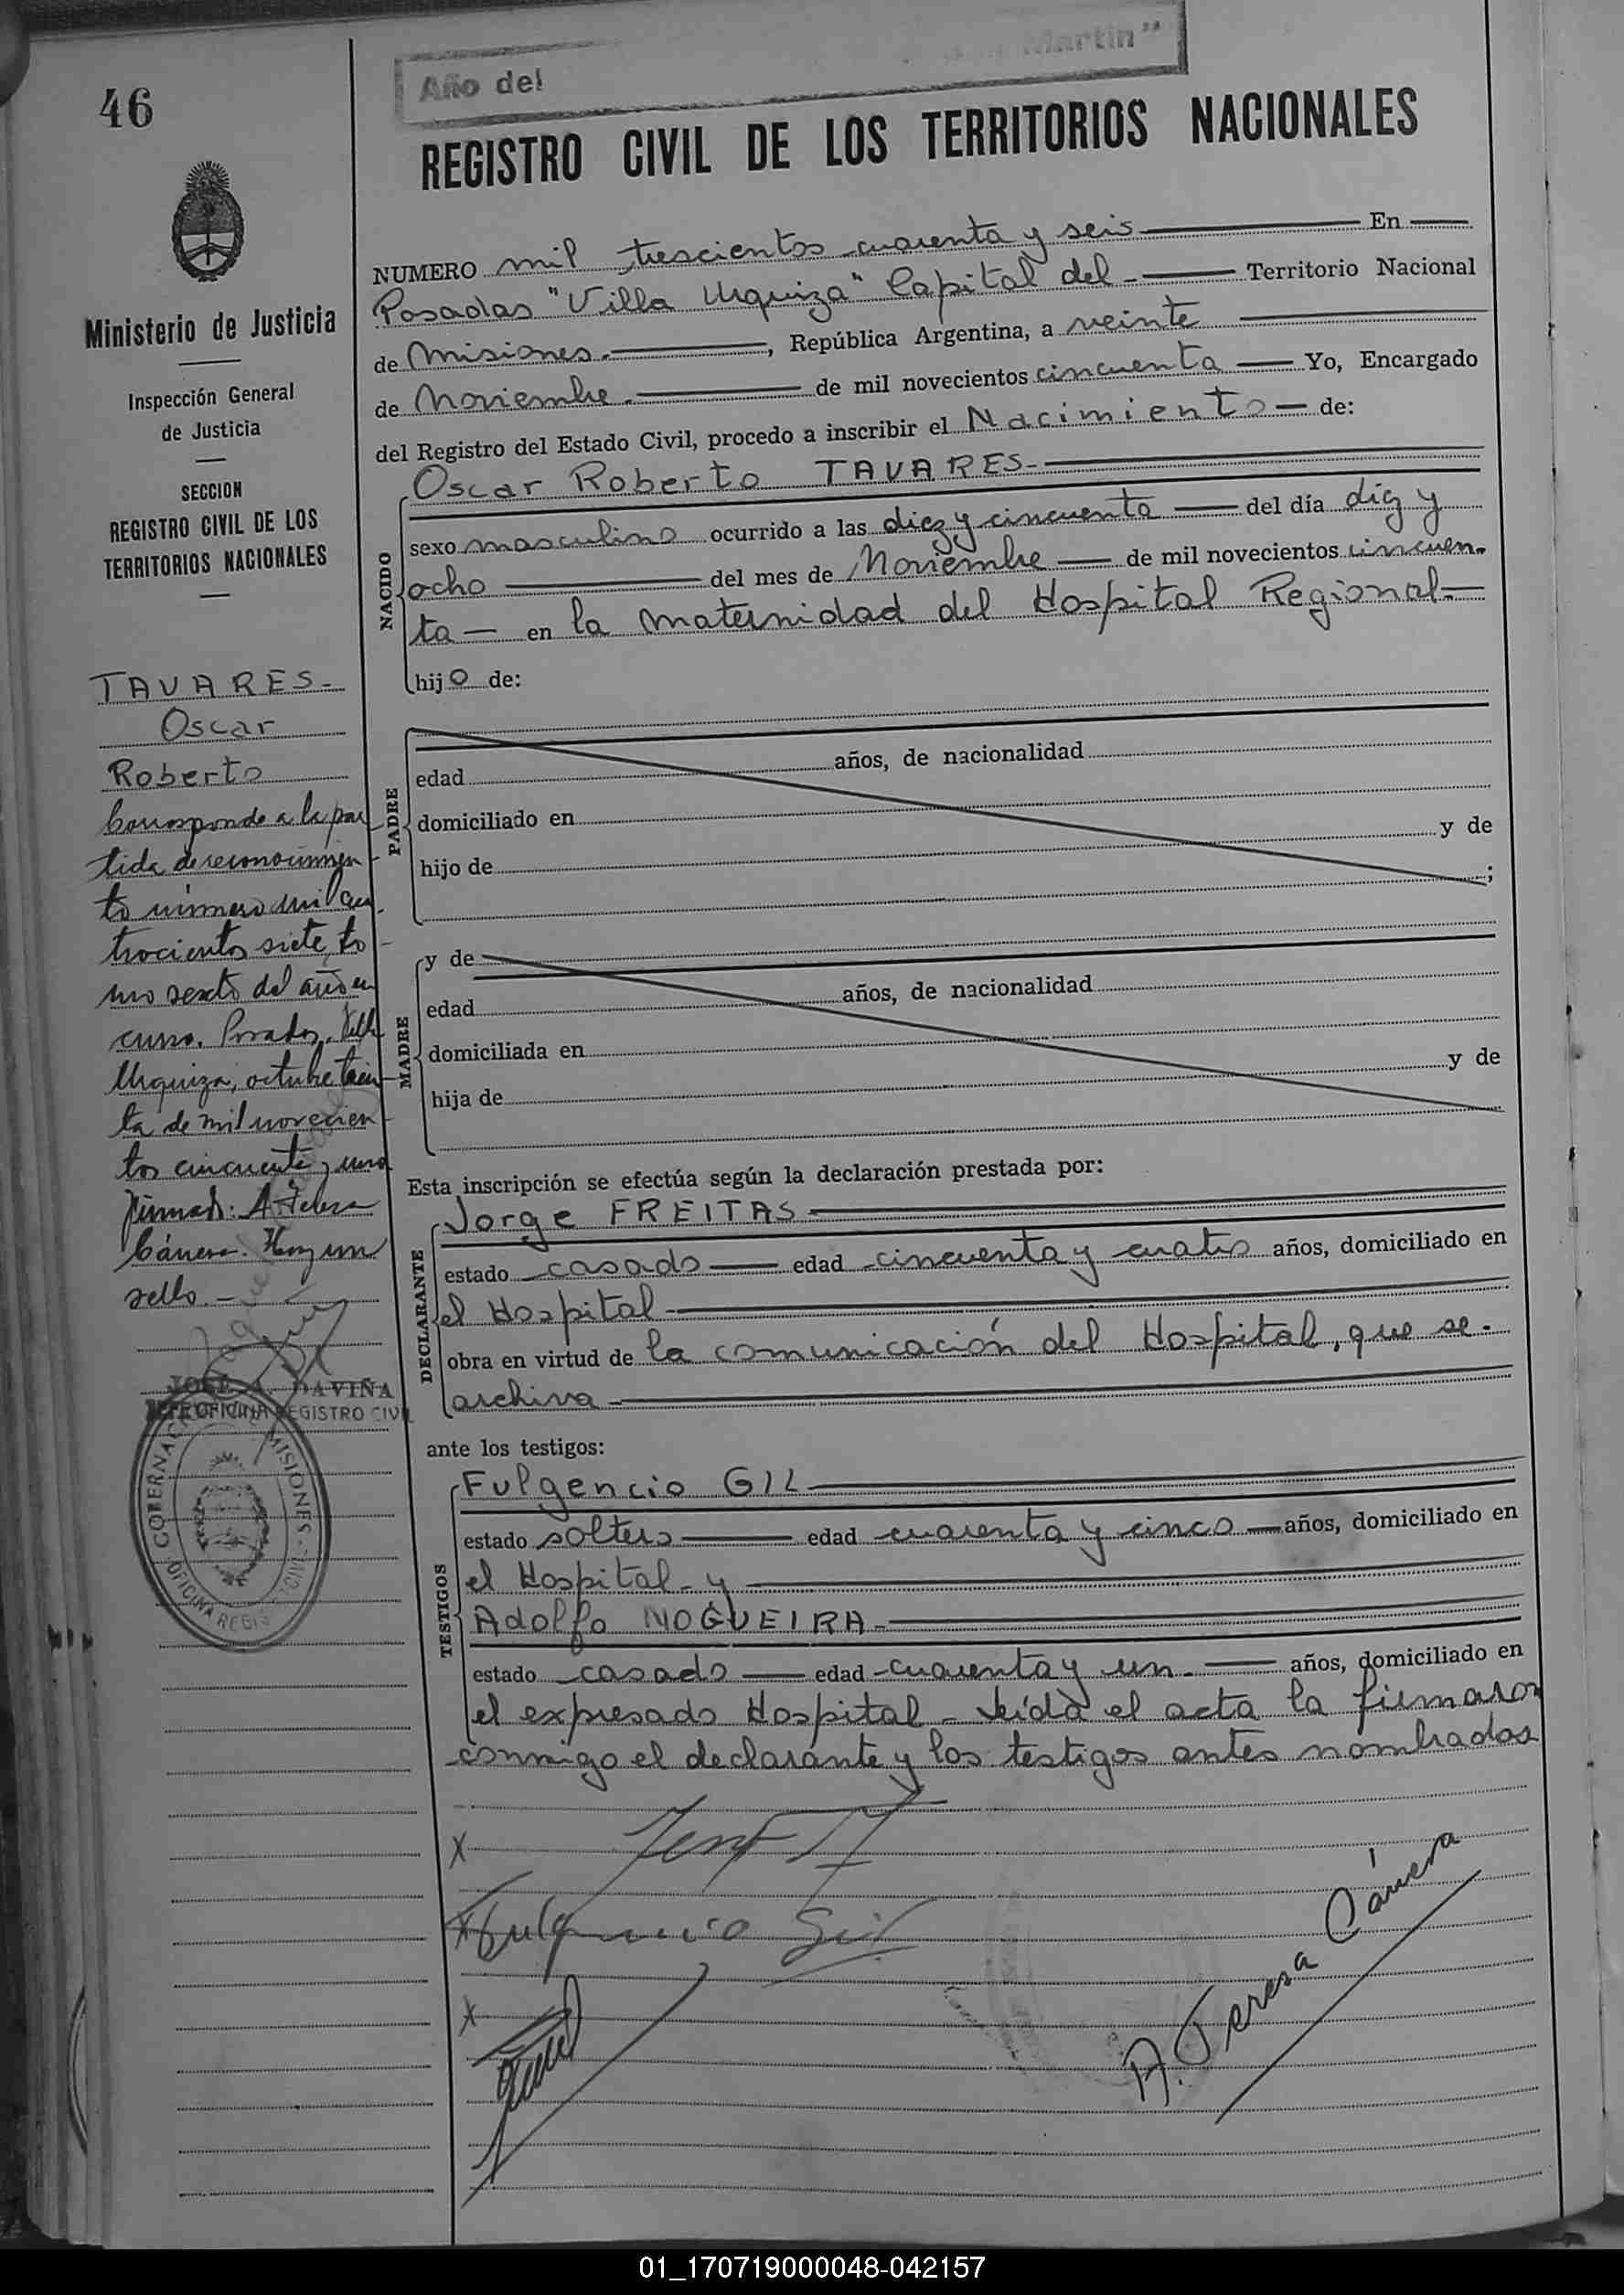 46
Año del Martín"
REGISTRO CIVIL DE LOS TERRITORIOS NACIONALES
Ministerio de Justicia
Inspección General
de Justicia
SECCION
REGISTRO CIVIL DE LOS
TERRITORIOS NACIONALES
TAVARES-
Oscar
Roberto
Corresponde a la par
tida de reconocimien-
to número mil cua
trocientos siete, to-
mo sexto del año en
curso. Posadas, Villa
Urquiza, octubre trein-
ta de mil novecien-
tos cincuenta y uno
Firmado: A. Teresa
Cánera. Hay un
sello.-
JOSE A. DAVIÑA
JEFE OFICINA REGISTRO CIVIL
GOBERNAC MISIONES - OFICINA REGIS CIVIL
NUMERO mil trescientos cuarenta y seis En
Posadas "Villa Urquiza" Capital del - Territorio Nacional
de Misiones.-, República Argentina, a veinte
de Noviembre.- de mil novecientos cincuenta Yo, Encargado
del Registro del Estado Civil, procedo a inscribir el Nacimiento - de:
NACIDO
Oscar Roberto TAVARES-
sexo masculino ocurrido a las diez y cincuenta del día diez y
ocho del mes de Noviembre de mil novecientos cincuen-
ta - en la maternidad del Hospital Regional.-
hijo de:
PADRE
edad años, de nacionalidad
domiciliado en
hijo de y de
;
MADRE
y de
edad años, de nacionalidad
domiciliada en
hija de y de
Esta inscripción se efectúa según la declaración prestada por:
DECLARANTE
Jorge FREITAS
estado casado edad cincuenta y cuatro años, domiciliado en
el Hospital
obra en virtud de la comunicación del Hospital, que se.
archiva
ante los testigos:
TESTIGOS
Fulgencio GIL
estado soltero edad cuarenta y cinco años, domiciliado en
el Hospital - y
Adolfo NOGUEIRA-
estado casado edad cuarenta y un.- años, domiciliado en
el expresado Hospital - Leída el acta la firmaron
conmigo el declarante y los testigos antes nombrados
X
X Fulgencio Gil
X
A. Teresa Cánera
01_170719000048-042157